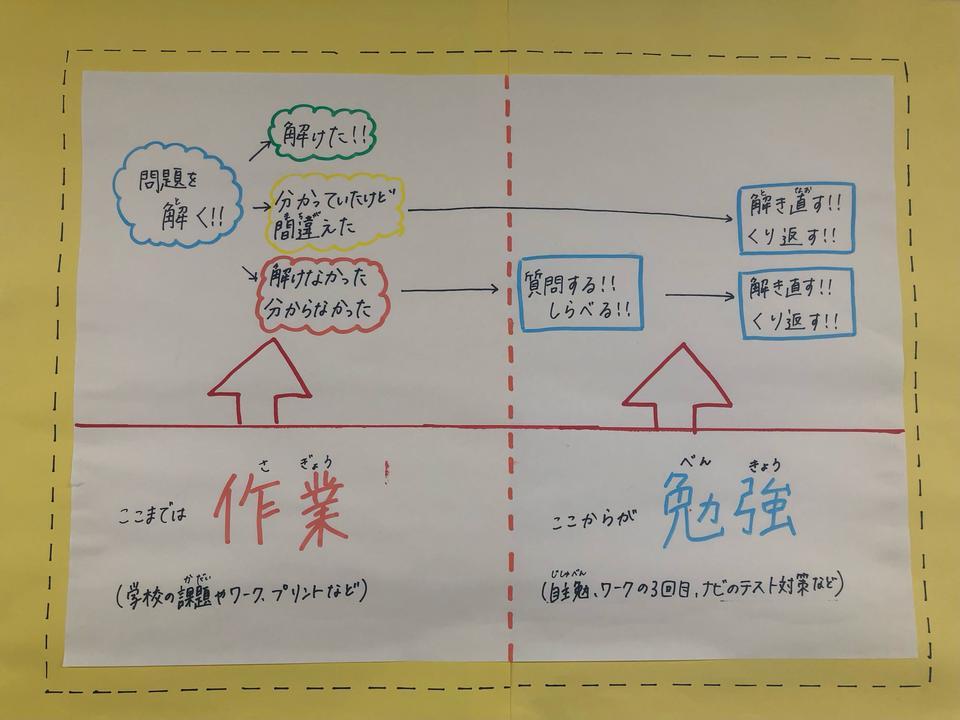 解けた!!
問題を
解く!!
分かっていたけど
間違えた
解けなかった
分からなかった
質問する!!
しらべる!!
解き直す!!
くり返す!!
解き直す!!
くり返す!!
ここまでは 作業
(学校の課題やワーク、プリントなど)
ここからが 勉強
(自主勉、ワークの3回目、ナビのテスト対策など)